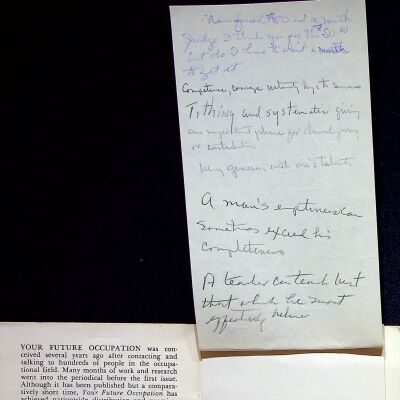 fined $50 and a month
Judge I thank you for the $50.00
but do I have to wait a month
to get it
Competence, courage certainly keys to success
Tithing and systematic giving
an important scheme for church giving
or contribution
being generous with one's talents
A man's emptiness can
Sometimes exceed his
Completeness
A teacher can teach best
that which he most
effectively believes
YOUR FUTURE OCCUPATION was con-
ceived several years ago after contacting and
talking to hundreds of people in the occupa-
tional field. Many months of work and research
went into the periodical before the first issue.
Although it has been published but a compara-
tively short time, Your Future Occupation has
achieved nationwide distribution and